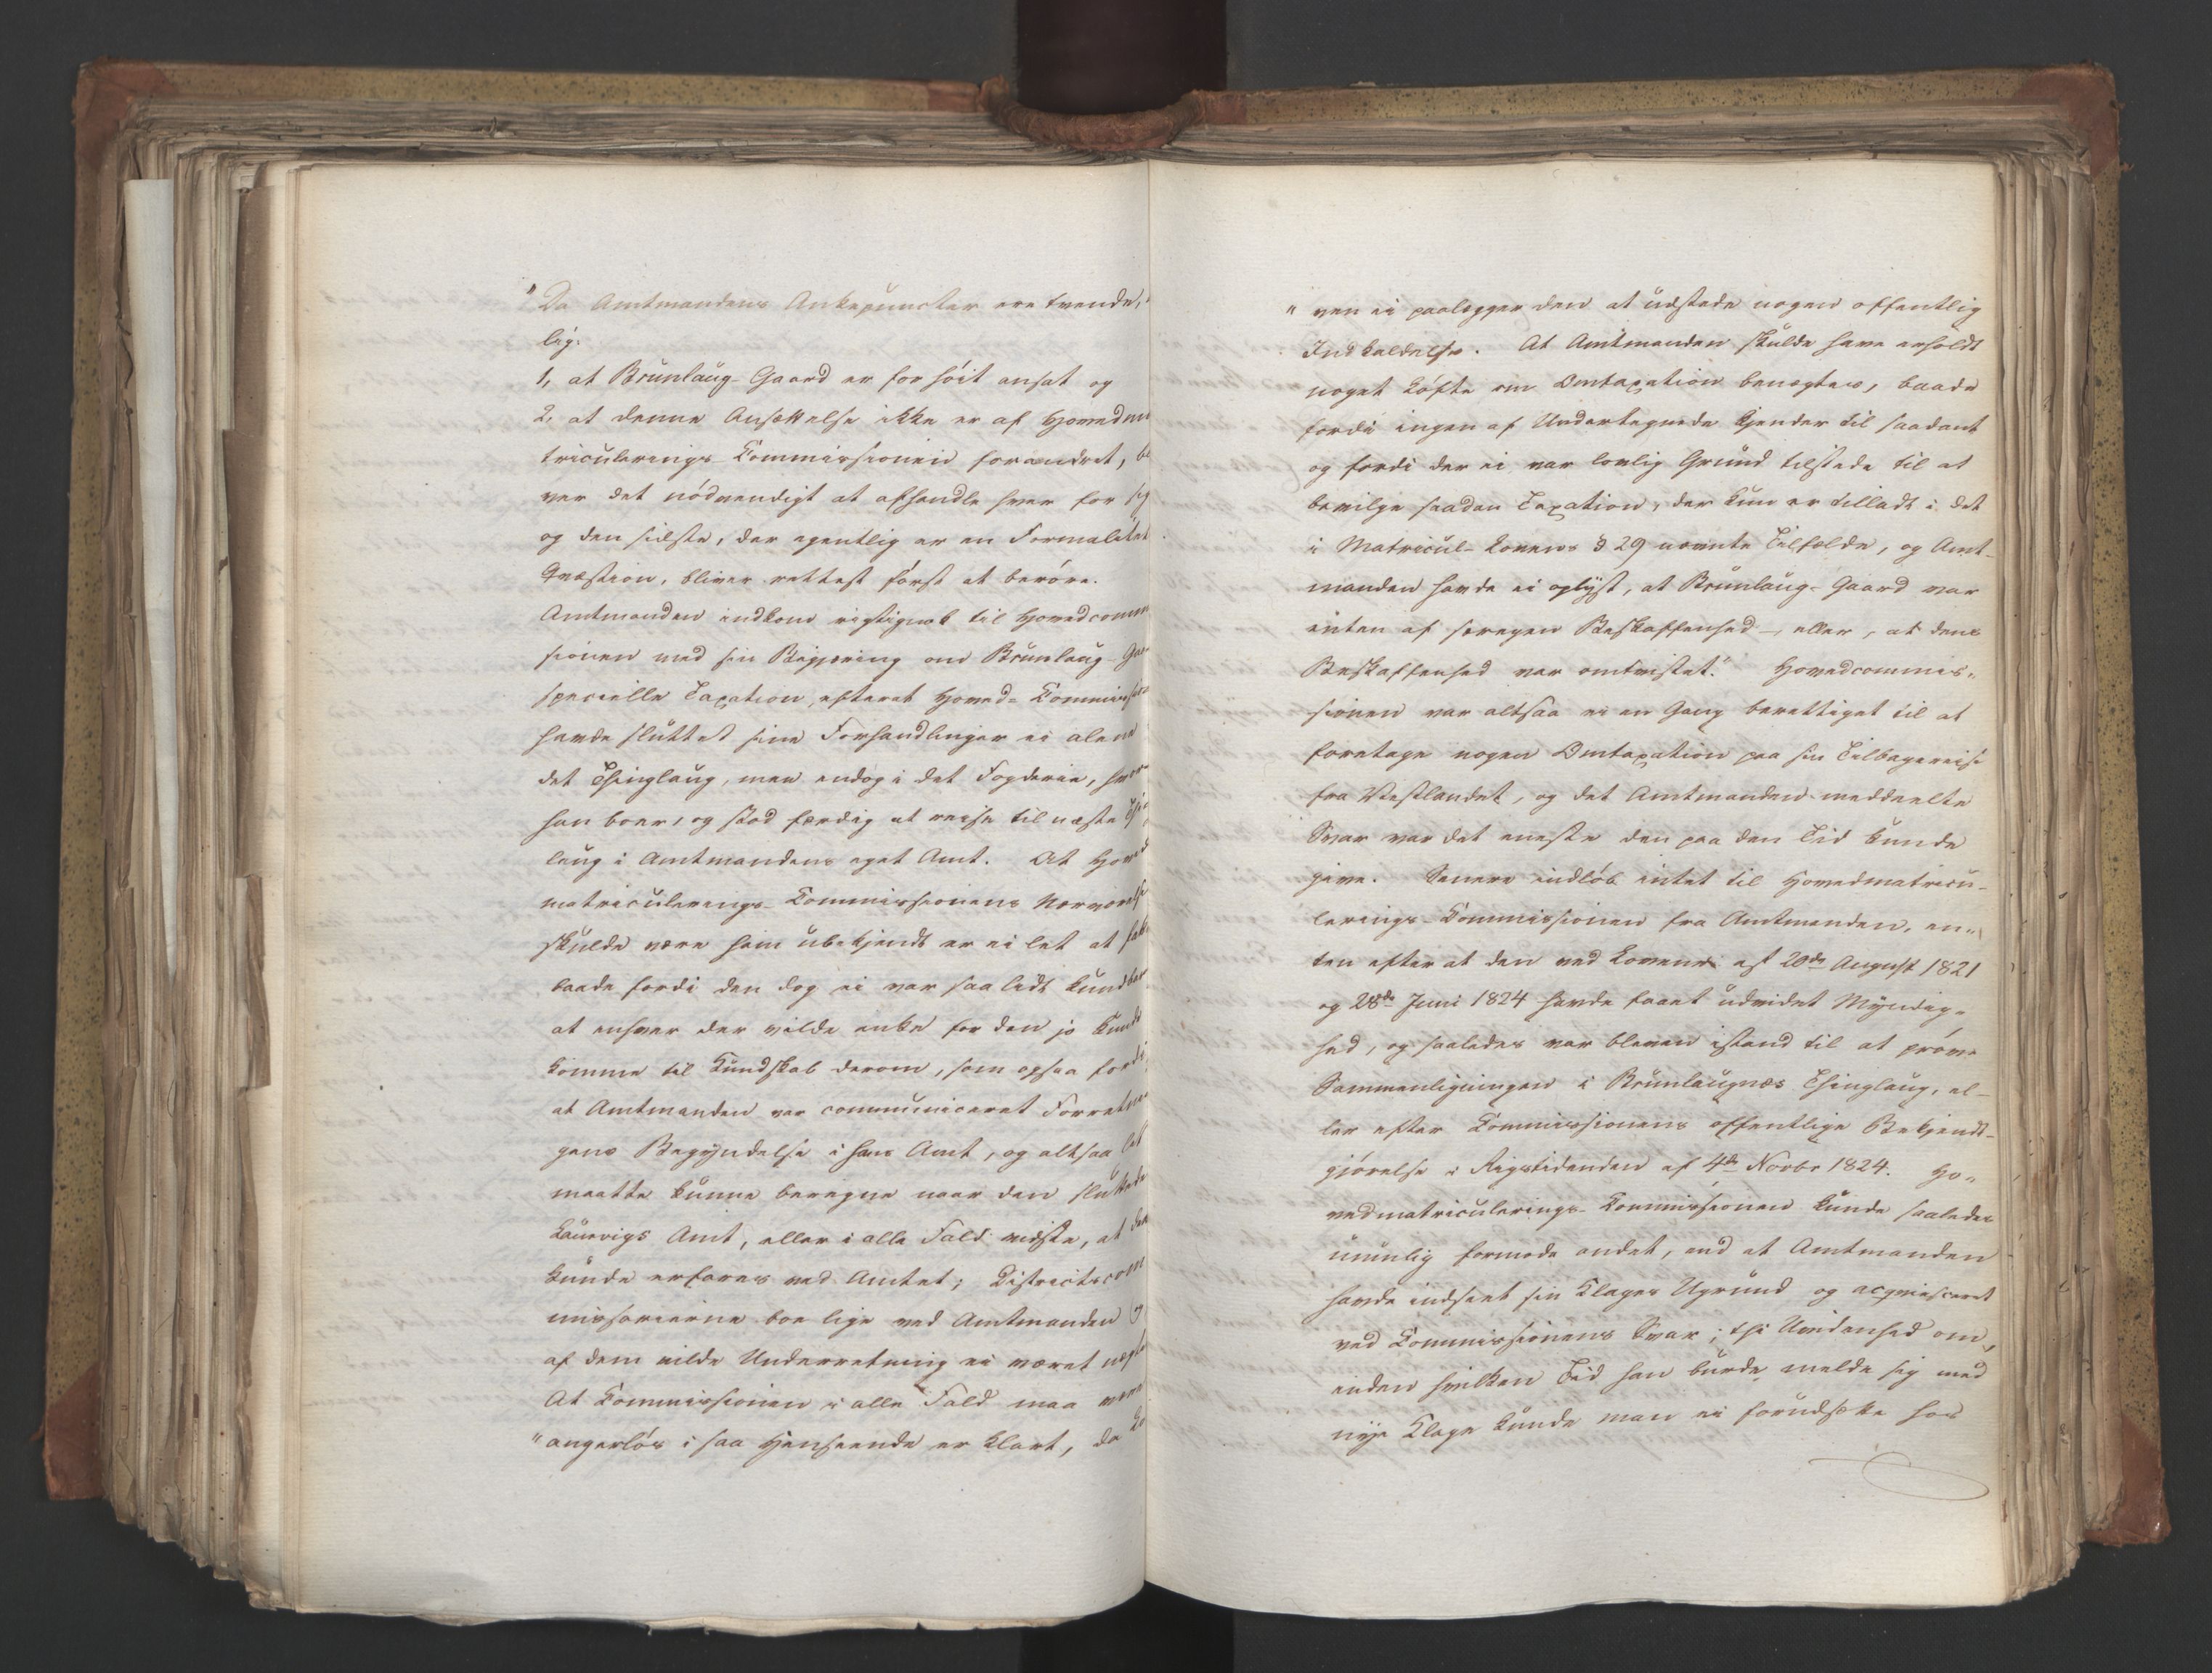 "Da Amtmandens Ankepuncter ere tvende,
lig:
1, at Brunlaug-Gaard er for høit ansat og
2, at denne Ansættelse ikke er af Hovedma
triculerings-Commissionen forandret, bi
ver det nödvendigt at afhandle hver for sig
og den sidste, der egentlig er en Formalitæt
Qvæstion, bliver rettest først at berøre.
Amtmanden indkom rigtignok til Hovedcomm
sionen med sin Begjæring om Brunlaug-Gaa
specielle Taxation, efterat Hoved-Commission
havde sluttet sine Forhandlinger ei alene
det Thinglaug, men endog i det Fogderie, hvor
han boer, og stod færdig at reise til næste Thi
laug i Amtmandens eget Amt. At Hoved
matriculerings-Commissionens Nærværelse
skulde være ham ubekjendt er ei let at fatte
baade fordi den dog ei var saa lidt kundbar
at enhver der vilde anke for den jo kunde
komme til Kundskab derom, som ogsaa fordi
at Amtmanden var communiceret Forretnin
gens Begyndelse i hans Amt, og altsaa let
maatte kunne beregne naar den sluttede
Laurvigs Amt, eller i alle Fald vidste, at den
kunde erfares ved Amtet; Districtscom
missarierne boe lige ved Amtmanden og
af dem vilde Underretning ei været nægtet
At Commissionen i alle Fald maa være
"angerløs i saa Henseende er klart, da Lo
"ven ei paalægger den at udstede nogen offentlig
Indkaldelse. At Amtmanden skulde have erholdt
noget Løfte om Omtaxation benægtes, baade
fordi ingen af Undertegnede kjender til saadant
og fordi der ei var lovlig Grund tilstede til at
bevilge saadan Taxation, der kun er tilladt i det
i Matricul-Lovens § 29 nævnte Tilfælde, og Amt-
manden havde ei oplyst, at Brunlaug-Gaard var
enten af særegen Beskaffenhed –, eller, at dens
Beskaffenhed var omtvistet." Hovedcommis„
sionen var altsaa ei en Gang berettiget til at
foretage nogen Omtaxation paa sin Tilbagereise
fra Vestlandet, og det Amtmanden meddeelte
Svar var det eneste den paa den Tid kunde
give. Senere indløb intet til Hovedmatricu-
lerings-Commissionen fra Amtmanden, en„
ten efter at den ved Lovene af 20de August 1821
og 28de Juni 1824 havde faaet udvidet Myndig„
hed, og saaledes var bleven istand til at prøve
Sammenligningen i Brunlaugnæs Thinglaug, el-
ler efter Commissionens offentlige Bekjendt-
gjørelse i Rigstidenden af 4de Novbr 1824. Ho„
vedmatriculerings-Commissionen kunde saaledes
umulig formode andet, end at Amtmanden
havde indseet sin Klages Ugrund og acqviesceret
ved Commissionens Svar; thi Uvidenhed om,
inden hvilken Tid han burde melde sig med
nye Klage kunde man ei forudsætte hos